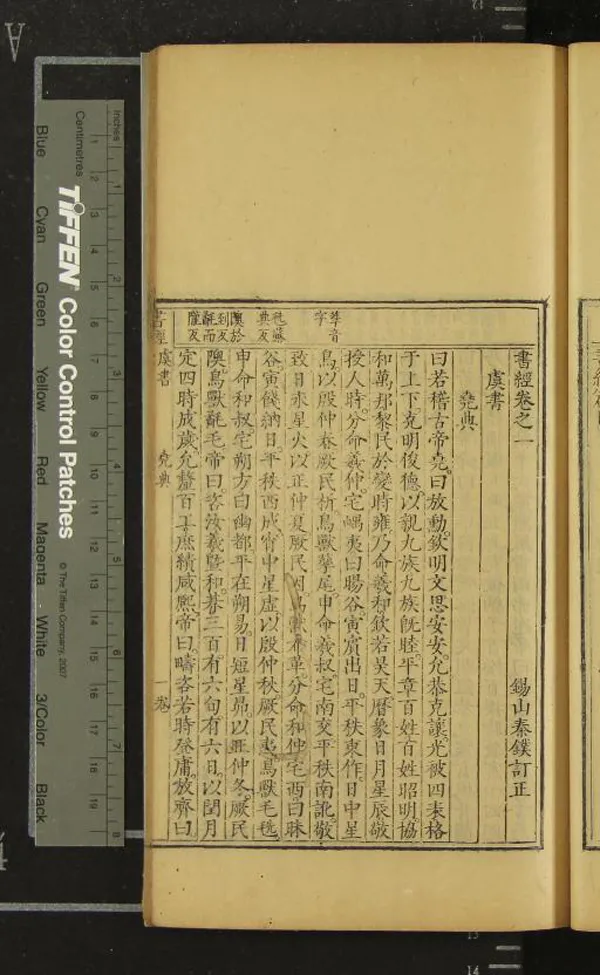 書經卷之一
錫山秦鏷訂正
虞書
堯典
曰若稽古帝堯曰放勳欽明文思安安允恭克讓光被四表格
于上下克明俊德以親九族九族旣睦平章百姓百姓昭明協
和萬邦黎民於變時雍乃命羲和欽若昊天曆象日月星辰敬
授人時分命羲仲宅嵎夷曰暘谷寅賓出日平秩東作日中星
鳥以殷仲春厥民析鳥獸孳尾申命羲叔宅南交平秩南訛敬
致日永星火以正仲夏厥民因鳥獸希革分命和仲宅西曰昧
谷寅餞納日平秩西成宵中星虛以殷仲秋厥民夷鳥獸毛毨
申命和叔宅朔方曰幽都平在朔易日短星昴以正仲冬厥民
隩鳥獸氄毛帝曰咨汝羲暨和朞三百有六旬有六日以閏月
定四時成歲允釐百工庶績咸熙帝曰疇咨若時登庸放齊曰
孳音
字
毨蘇
典反
隩於
到反
氄而
隴反
書經 虞書 堯典 一卷
Inches
Centimetres
TIFFEN Color Control Patches
© The Tiffen Company, 2007
Blue Cyan Green Yellow Red Magenta White 3/Color Black
1 2 3 4 5 6 7 8
1 2 3 4 5 6 7 8 9 10 11 12 13 14 15 16 17 18 19
A
12
13
14